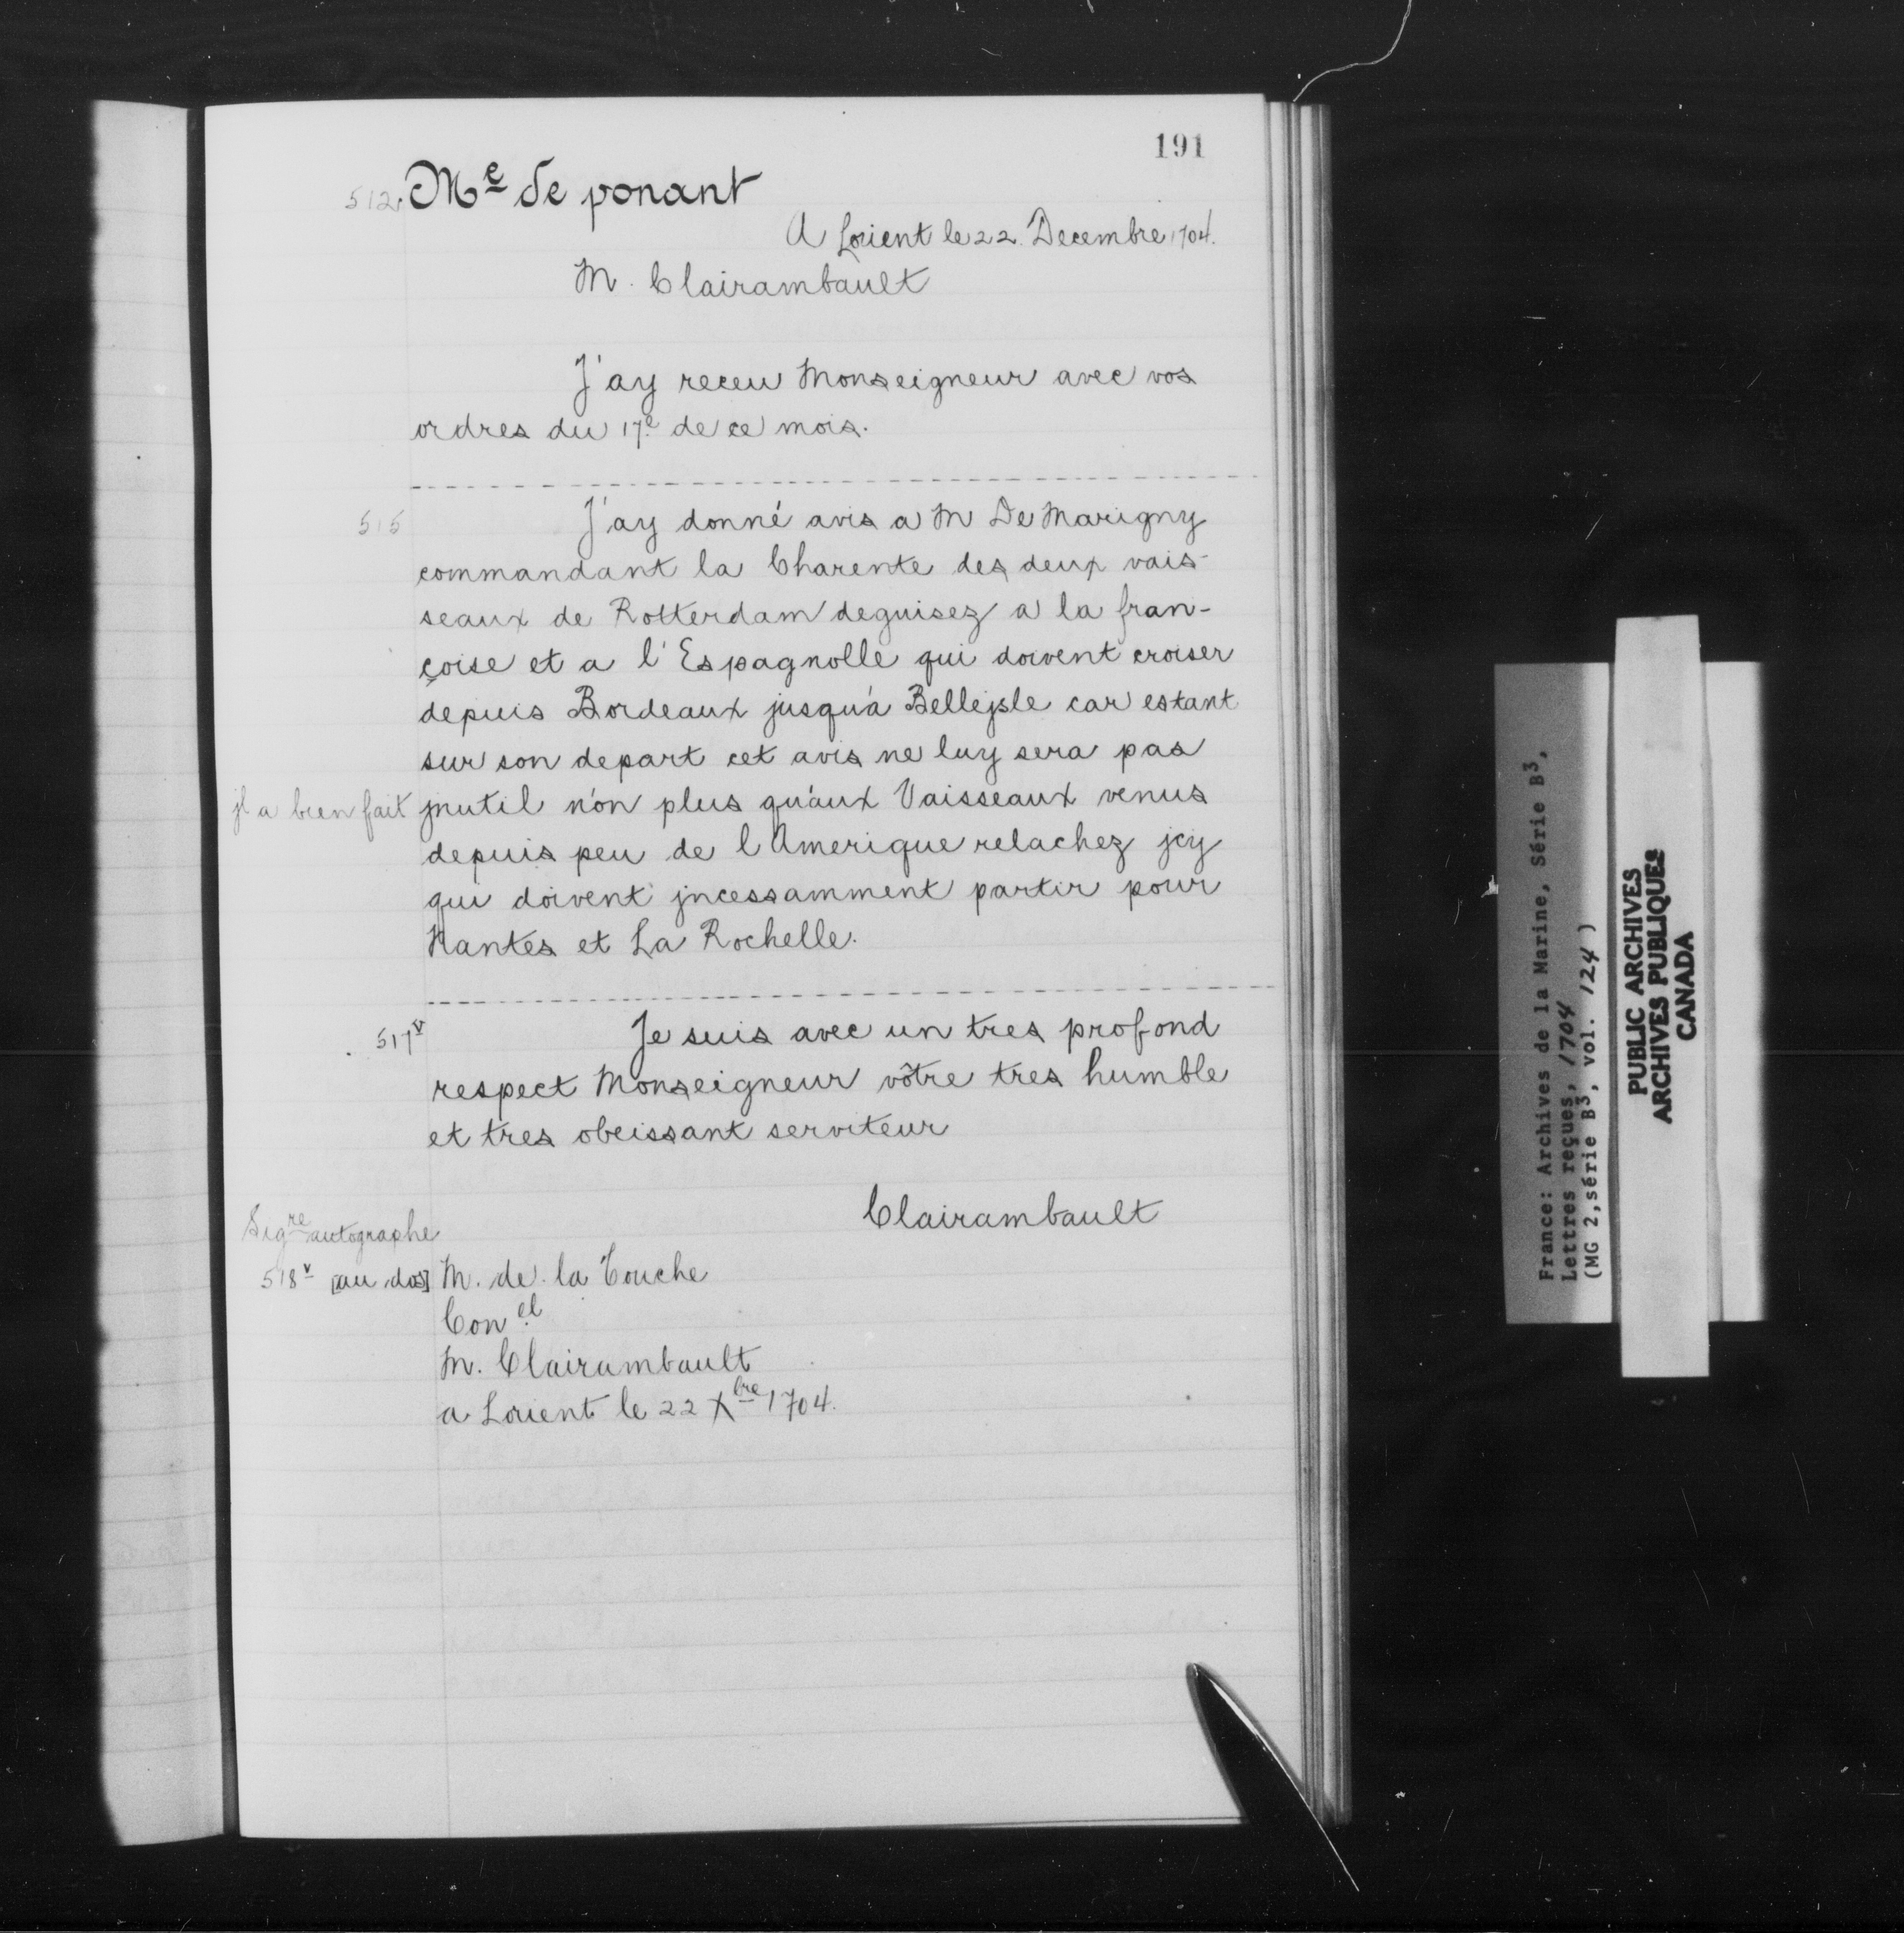 191
512. Me de ponant
A Lorient le 22. Decembre 1704.
M. Clairambault
J'ay receu Monseigneur avec vos
ordres du 17e de ce mois.
515 J'ay donné avis a M De Marigny
commandant la Charente des deux vais-
seaux de Rotterdam deguisez a la fran-
çoise et a l'Espagnolle qui doivent croiser
depuis Bordeaux jusqu'a Bellejsle car estant
sur son depart cet avis ne luy sera pas
jl a bien fait jnutil n'on plus qu'aux Vaisseaux venus
depuis peu de l Amerique relachez jcy
qui doivent jncessamment partir pour
Nantes et La Rochelle.
517v Je suis avec un tres profond
respect Monseigneur vôtre tres humble
et tres obeissant serviteur
Clairambault
Sigre autographe
518v [au dos] M. de la Touche
Con el
M. Clairambault
a Lorient le 22 Xbre 1704.
France: Archives de la Marine, Série B3,
Lettres reçues, 1704
(MG 2, série B3, vol. 124)
PUBLIC ARCHIVES
ARCHIVES PUBLIQUES
CANADA